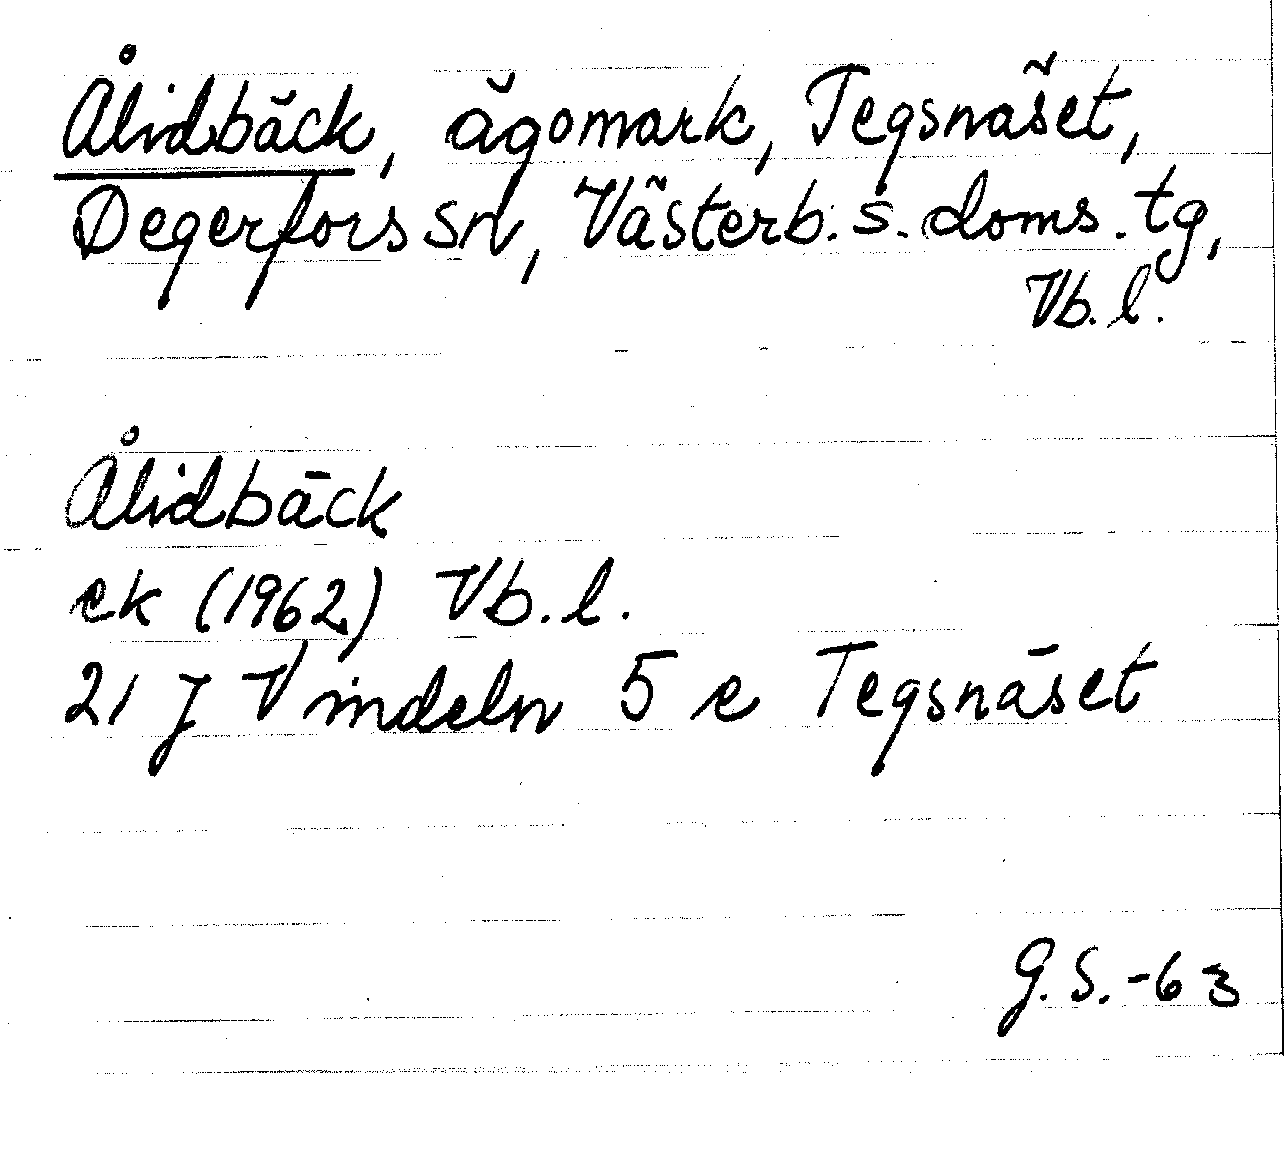 Ålidbäck, ägomark, Tegsnäset,
Degerfors sn, Västerb. s. doms. tg,
Vb. l.
Ålidbäck
ek (1962) Vb. l.
21 J Vindeln 5 e Tegsnäset
G. S. -63